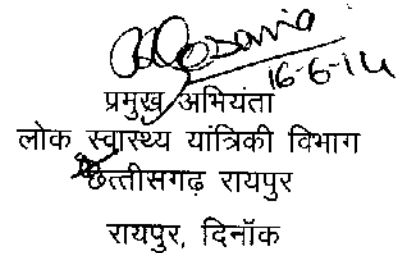 16-6-14
प्रमुख अभियंता
लोक स्वास्थ्य यांत्रिकी विभाग
छत्तीसगढ़ रायपुर
रायपुर, दिनॉक